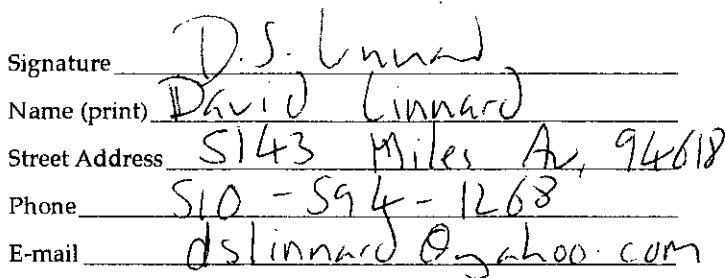 Signature D.S. Linnard
Name (print) David Linnard
Street Address 5143 Miles Av, 94618
Phone 510-594-1268
E-mail dslinnard@yahoo.com